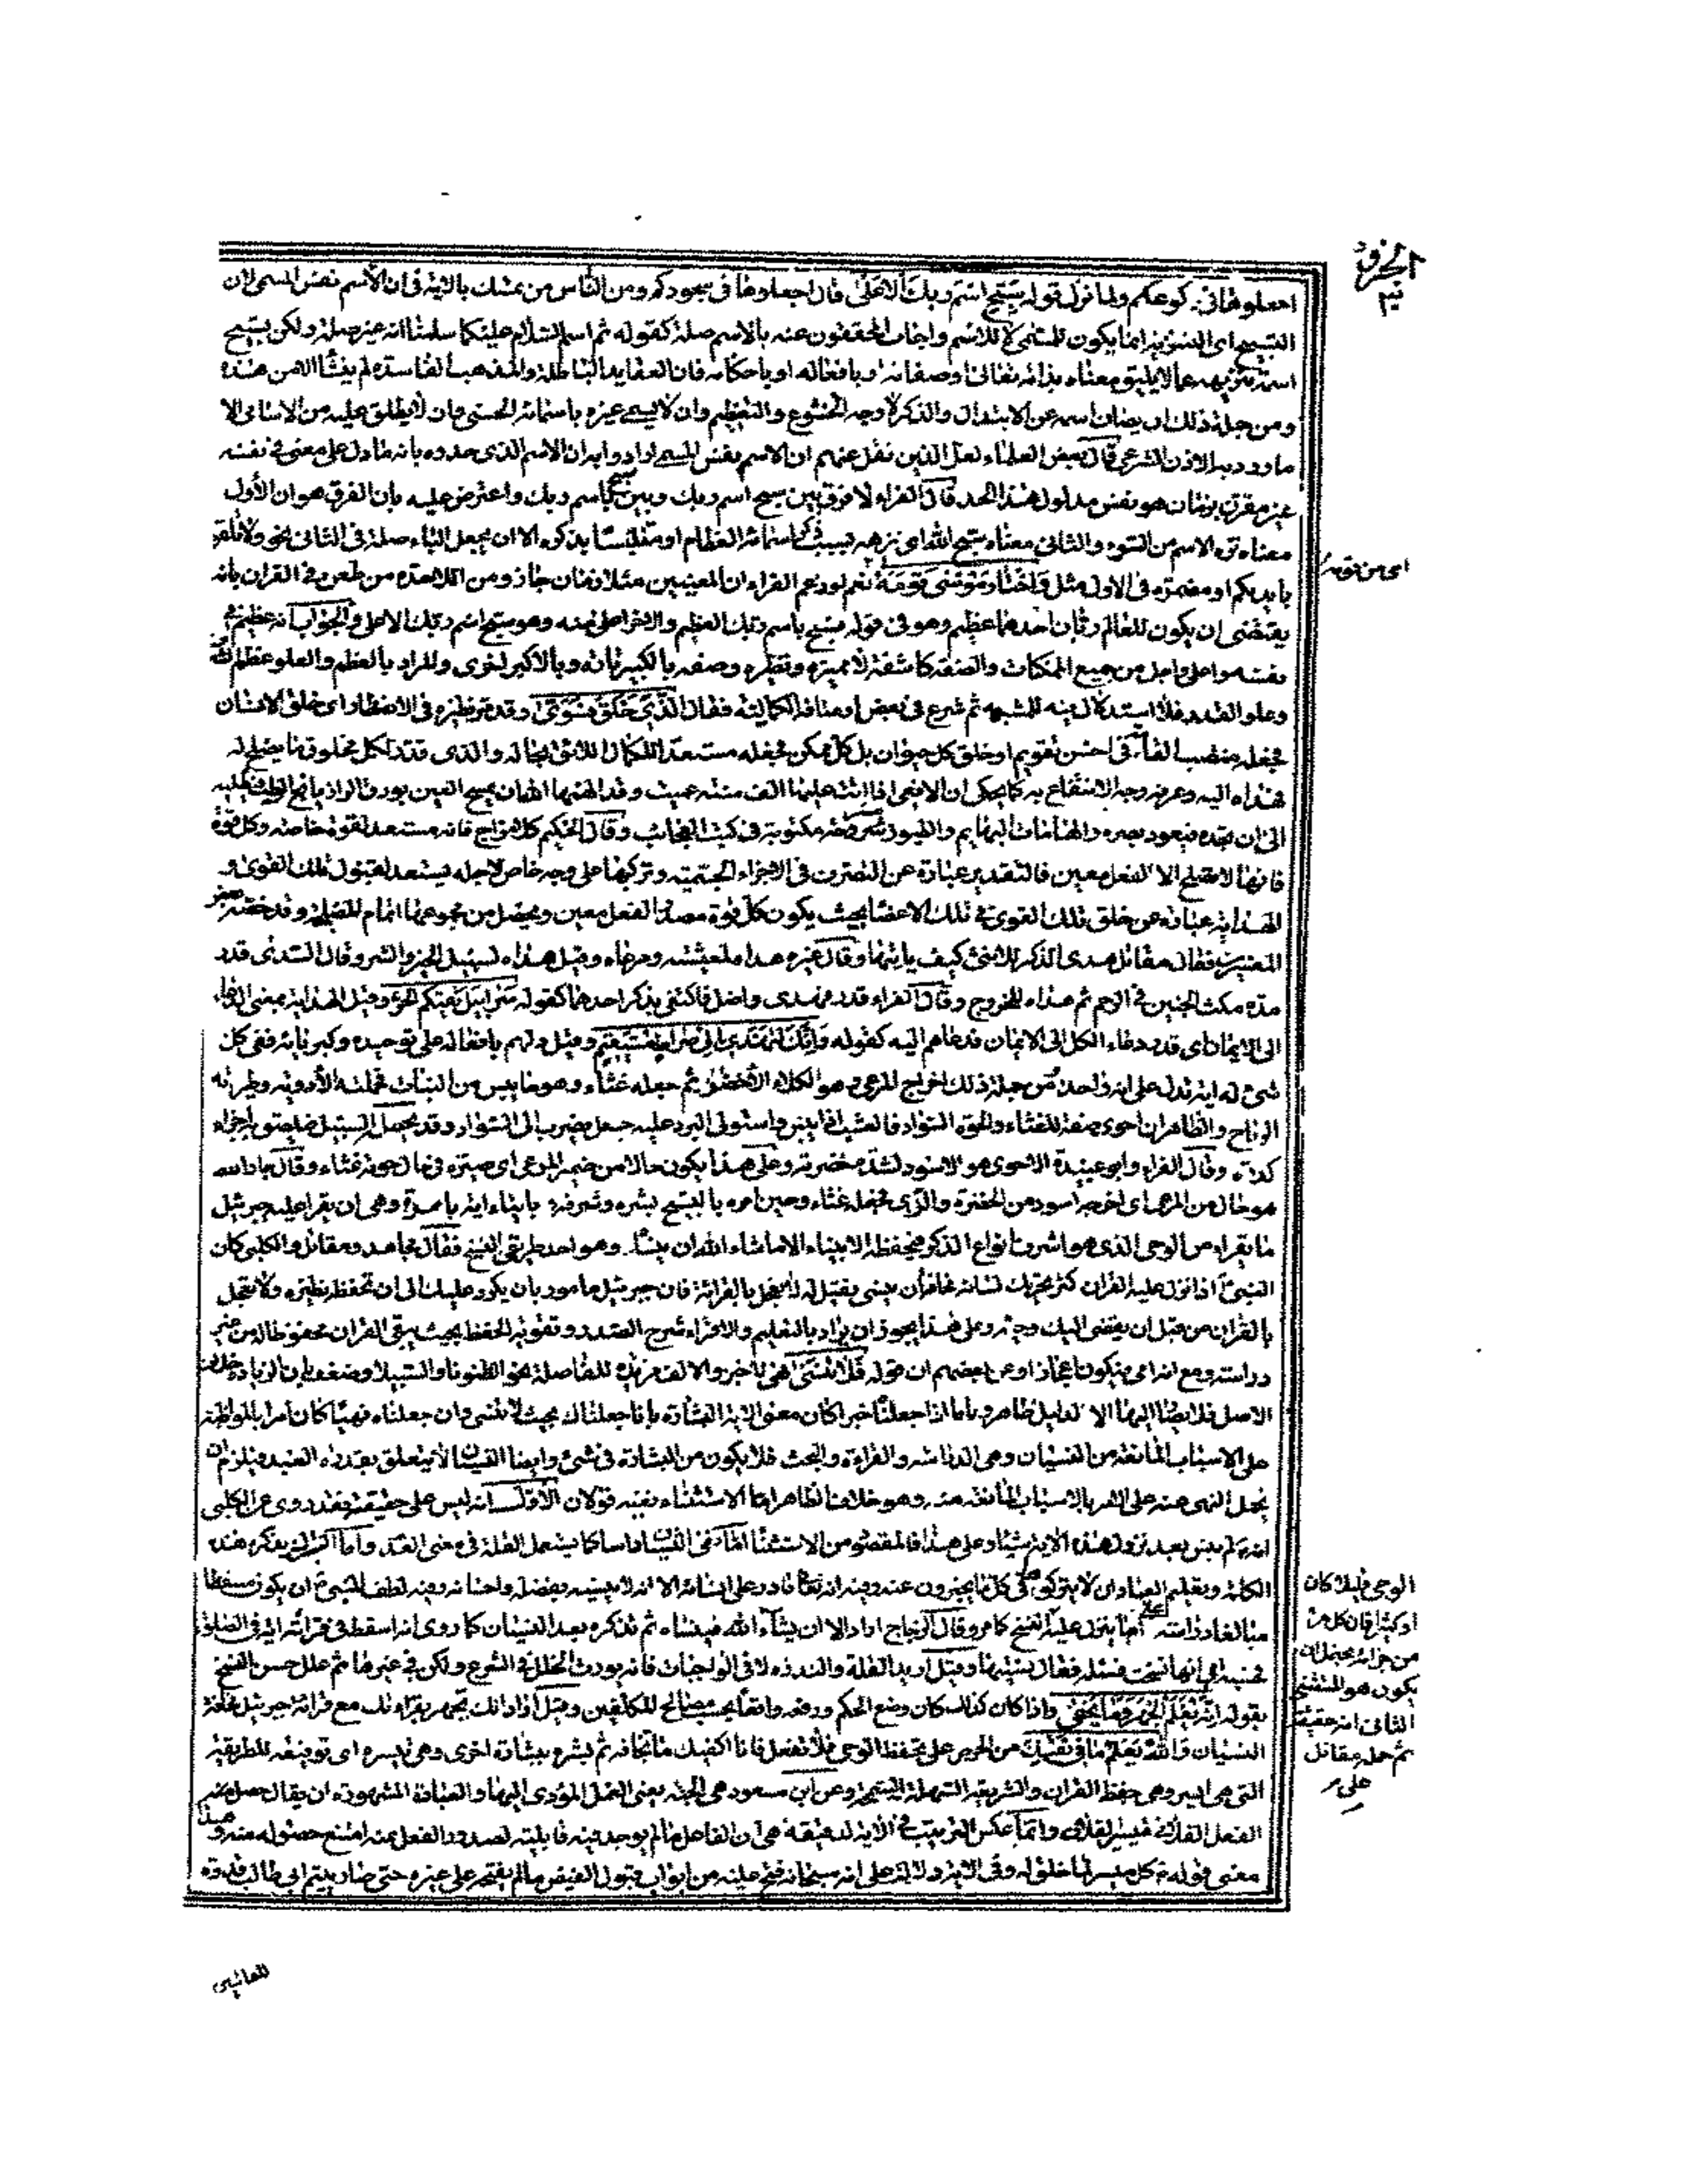 الجزو
٣٠
اجعلوها في ركوعكم ولما نزل قوله سبح اسم ربك الاعلى قال اجعلوها في سجودكم ومن الناس من تمسك بالاية في ان الاسم نفس المسمى لان
التسبيح اى التنزيه انما يكون للمسمى لا للاسم واجاب المحققون عنه بالاسم صلة كقوله ثم اسم السلام عليكما سلمنا انه غير صلة ولكن تسبيح
اسمه تنزيهه عما لا يليق معناه بذاته تعالى او صفاته او بافعاله او باحكامه فان العقايد الباطلة والمذهب الفاسدة لم ينشأ الا من هذه
ومن جملة ذلك ان يصان اسمه عن الابتذال والذكر لا وجه الخشوع والتعظيم وان لا يسمى غيره باسمائه الحسنى وان لا يطلق عليه من الاسامى الا
ما ورد به الاذن الشرعى قال بعض العلماء لعل الذين نقل عنهم ان الاسم نفس المسمى ارادوا به ان الاسم الذى حدوه بانه ما دل على معنى في نفسه
غير مقترن بزمان هو نفس مدلول هذا الحد قال الفراء لا فرق بين سبح اسم ربك وبين سبح باسم ربك واعترض عليه بان الفرق هو ان الأول
معناه نزه الاسم من السوء والثاني معناه سبح الله اى نزهه بسبب ذكر اسمائه العظام او متلبسا بذكره الا ان يجعل الباء صلة في الثاني نحو ولا تلقوا
بايديكم او مضمرة في الاول مثل واختار موسى قومه نعم لو زعم الفراء ان المعنيين متلازمان جاز ومن الملاحدة من طعن في القران بانه
اى من قومه
يقتضى ان يكون للعالم ربان احدهما عظيم وهو في قوله فسبح باسم ربك العظيم والاخر اعلى منه وهو سبح اسم ربك الاعلى والجواب انه عظيم في
نفسه واعلى واجل من جميع الممكنات والصفة كاشفة لا مميزة ونظيره وصفه بالكبير تارة وبالاكبر اخرى والمراد بالعظم والعلو عظم الشأن
وعلو القدر فلا استدلال فيه للمشبهه ثم شرع في بعض اوصافه الكمالية فقال الذى خلق فسوى وقد مر نظيره في الانفطار اى خلق الانسان
فجعله منتصب القامة في احسن تقويم او خلق كل حيوان بل كل ممكن فجعله مستعدا للكمال اللائق بحاله والذى قدر لكل مخلوق ما يصلح له
فهداه اليه وعرفه وجه الانتفاع به كما يحكى ان الافعى اذا اتت عليها الف سنة عميت وقد الهمها الله ان مسح العين بورق الرازيانج الرطب
الى ان تجده فيعود بصرها والهامات البهايم والطيور مشروحة مكتوبة في كتب العجائب وقال الحكيم كل مزاج فانه مستعد لقوة خاصة وكل قوة
فانها لا تصلح الا لفعل معين فالتقدير عبارة عن التصرف في الاجزاء الجسمية وتركيبها على وجه خاص لاجله يستعد لقبول تلك القوى و
الهداية عبارة عن خلق تلك القوى في تلك الاعضا بحيث يكون كل قوة مصدرا لفعل معين ويحصل من مجموعها اتمام المصلحة وقد خصه بعض
المفسرين فقال مقاتل هدى الذكر للانثى كيف ياتيها وقال غيره هداه لمعيشته ومرعاه وقيل هداه لسبيل الخير والشر وقال السدى قدر
مدة مكث الجنين في الرحم ثم هداه للخروج وقال الفراء قدر فهدى واضل فاكتفى بذكر احدهما كقوله سرابيل تقيكم الحر وقيل الهداية بمعنى الدعاء
الى الايمان اى قدر دعاء الكل الى الايمان فدعاهم اليه كقوله وانك لتهدى الى صراط مستقيم وقيل دلهم بافعاله على توحيده وكبريائه ففى كل
شىء له اية تدل على انه واحد ومن جملة ذلك اخراج المرعى وهو الكلاء الأخضر ثم جعله غثاء وهو ما يبس من النبات فحملته الأودية وطيرته
الرياح والظاهر ان احوى صفة للغثاء والحوة السواد فالعشب اذا يبس واستولى البرد عليه جعل يضرب الى السواد وقد يحمل السيل فيلصق به اجزاء
كدرة وقال الفراء وابو عبيدة الاحوى هو الاسود لشدة خضرته وعلى هذا يكون حالا من ضمير المرعى اى صيره في حال حوته غثاء وقال جار الله
هو حال من المرعى اى اخرجه اسود من الخضرة والرى فجعله غثاء وحين امره بالتسبيح بشره وشرفه بايتاء اية باهرة وهى ان يقرا عليه جبرئيل
ما يقراه من الوحى الذى هو اشرف انواع الذكر فيحفظه لا ينساه الا ما شاء الله ان ينسا وهو احد طريقى النسخ فقال مجاهد ومقاتل والكلبى كان
النبى اذا نزل عليه القران كثر تحريك لسانه مخافة ان ينسى فقيل له لا تعجل بالقرائة فان جبرئيل مامور بان يكرر عليك الى ان تحفظ نظيره ولا تعجل
بالقران من قبل ان يقضى اليك وحيه وعلى هذا يجوز ان يراد بالتعليم والاقراء شرح الصدر وتقوية الحفظ بحيث يبقى القران محفوظا له من غير
دراسة ومع انه امى فيكون اعجازا وعن بعضهم ان قوله فلا تنسى نهى لا خبر والالف مزيدة للفاصلة نحو الظنونا والسبيلا وضعف بان الزيادة خلاف
الاصل فلا يصار اليها الا لدليل ظاهر وباما اذا جعلنا خبرا كان معنى الاية البشارة بانا جعلناك بحيث لا تنسى وان جعلناه نهيا كان امرا بالمواظبة
على الاسباب المانعة من النسيان وهى الدراسة والقراءة والبحث فلا يكون من البشارة في شىء وايضا النسيان لا يتعلق بقدرة العبد فيلزم ان
يحمل النهى عنه على الامر بالاسباب المانعة منه وهو خلاف الظاهر اما الاستثناء ففيه قولان الأول انه ليس على حقيقته فقد روى عن الكلبى
انه لم ينس بعد نزول هذه الاية شيئا وعلى هذا فالمقصود من الاستثنا اما نفى النسيان راسا كما يستعمل القلة في معنى العدم واما التبرك بذكر هذه
الكلمة وتعليم العباد ان لا يتركوها في كل ما يخبرون عنه وفيه انه تعالى قادر على انسائه الا انه لا ينسيه بفضله واحسانه وفيه لطف للنبى ان يكون متيقظا
مبالغا دراسته اما ينزل عليه النسخ كما مر وقال الزجاج اراد الا ان يشاء الله فينساه ثم تذكره بعد النسيان كما روى انه اسقط في قرائته اية في الصلوة
الوحى قليلا كان
او كثيرا فان كل جزء
من اجزائه يحتمل ان
يكون هو المستثنى
الثانى انه حقيقة
ثم حمله مقاتل
على
فحسب ابى انها نسخت فسئله فقال نسيتها وقيل اريد القلة والندرة لا في الواجبات فانه يورث الخلل في الشرع ولكن في غيرها ثم علل حسن النسخ
بقوله انه يعلم الجهر وما يخفى واذا كان كذلك كان وضع الحكم ورفعه واقعا بحسب مصالح للمكلفين وقيل اراد انك تجهر بقراءتك مع قرائة جبرئيل مخافة
النسيان والله يعلم ما في نفسك من الحرص على تحفظ الوحى فلا تفعل فانا اكفيك ما تخافه ثم بشره ببشارة اخرى وهى نيسره اى توفيقه للطريقة
التى هى ايسر وهى حفظ القران والشريعة السهلة السمحة وعن ابن مسعود هى الجنة يعنى العمل المؤدى اليها والعبارة المشهورة ان يقال جعل
الفعل الفلانى ميسرا لفلان وانما عكس الترتيب في الاية لدقيقة هى ان الفاعل ما لم يوجد فيه قابلية لصدور الفعل عنه امتنع حصوله منه وهذا
معنى قوله كل ميسر لما خلق له وفي الاية دلالة على انه سبحانه فتح عليه من ابواب قبول الفيض ما لم يفتحه على غيره حتى صار يتيم ابى طالب قدوة
للعالمين